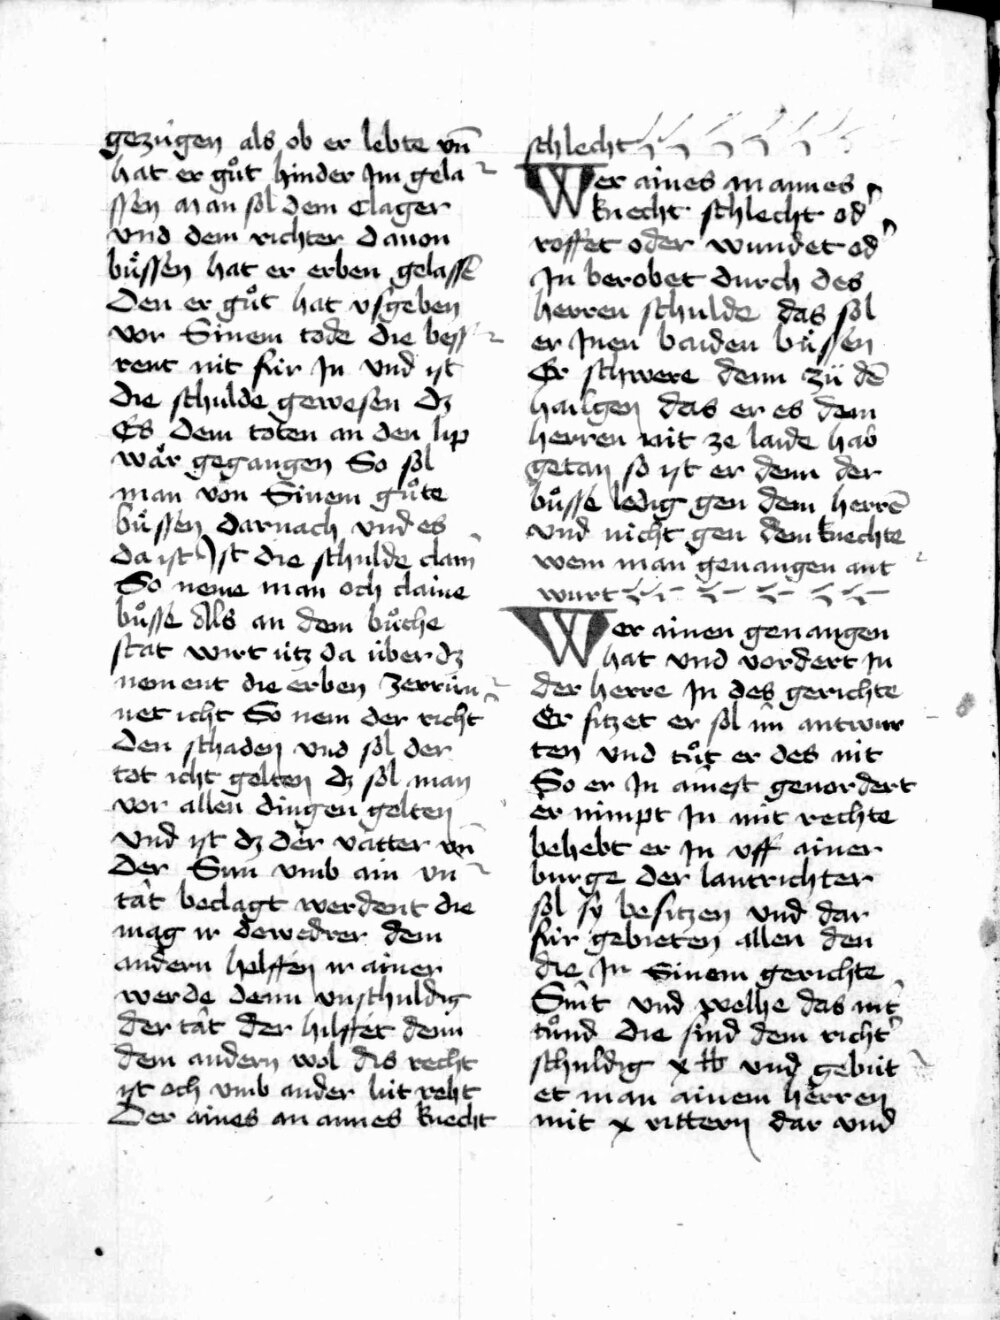 gezúgen als ob er lebte vn̄
hat er gůt hinder Im gela
ssen Man sol dem Clager
vnd dem richter dauon
bůssen hat er erben gelassē
Den er gůt hat vsgeben
vor Sinem tode die bess
rent nit für In vnd ist
die schulde gewesen dz
Es dem toten an den lip
wår gegangen So sol
man von Sinem gůte
bůssen darnach vnd es
da ist Ist die schulde clain
So neme man och claine
bůsse Als an dem bůche
stat wirt ütz da über dz
nement die erben Zerrün
net icht So nem der richt
den schaden vnd sol der
tot icht gelten dz sol man
vor allen dingen gelten
vnd ist dz der vatter vn̄
der Sun vmb ain vn
tât beclagt werdent die
mag ir dewedrer dem
andern helffen ir ainer
werde denn vnschuldig
der tât der hilffet denn
dem andern wol dis recht
ist och vmb ander lüt reht
Der aines mannes knecht
schlecht
Wer aines mannes
knecht schlecht od
roffet oder wundet od
In berobet durch des
herren schulde das sol
er Inen baiden bůssen
Er schwere denn zü dē
hailgen das er es dem
herren nit ze laide hab
getan so ist er denn der
bůsse ledig gen dem herrē
vnd nicht gen dem knechte
wem man geuangen ant
wurt
Wer ainen geuangen
hat vnd vordert In
der herre In des gerichte
Er sitzet er sol im antwur
ten vnd tůt er des nit
So er In ainest geuordert
er nimpt In mit rechte
behebt er In vff ainer
burge der lantrichter
sol sy besitzen vnd dar
für gebieten allen den
die In Sinem gerichte
Sint vnd welhe das nit
tůnd die sind dem richt
schuldig x ℔ vnd gebüt
et man ainem herren
mit x rittern dar vnd